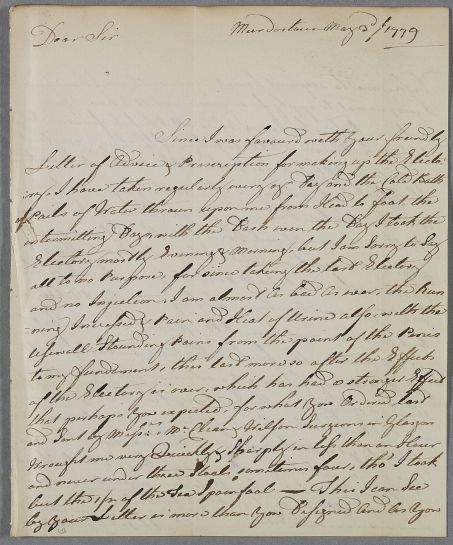 Murdostoun May 3d 1779
Dear Sir
Since I was favourd with your friendly
Letter of Advice & Prescription for making up the Electu
ary. I have taken regularly every or Day and the Cold Bath
of Pails of Water thrown upon me from Head to foot the
intermitting Days, with the Bark even the Day I took the
Electory mostly Evening & Morning, but I am Sorry to Say
all to no Purpose for since taking the last Electory
and no Injection, I am almost as bad as ever, the Run
ning Increased & Pain and Heat of Urine also, with the
usewell Stounding Pains from the point of the Penis
to my fundament, this last more so after the Effects
of the Electory is over, which has had a stronger Effect
that perhaps you expected, for what you Ordered last
and Sent by Messrs McLean & Wilson Surgeons in Glasgow
Wrought me very Quickly & Sharply in less than an Hour
and never under three Stools, sometimes four, tho I took
but the of the Tea Spoonfool — This I can See
by your Letter is more than you Designed and as you